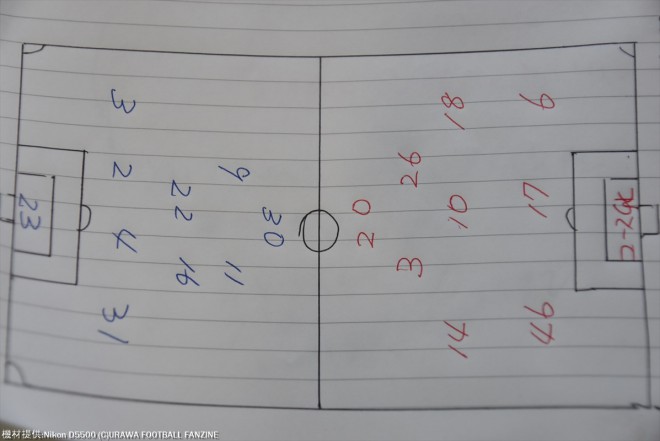 3
2
4
31
22
16
9
11
30
23
20
26
3
18
10
14
6
17
46
GK
機材提供:Nikon D5500 (C)URAWA FOOTBALL FANZINE